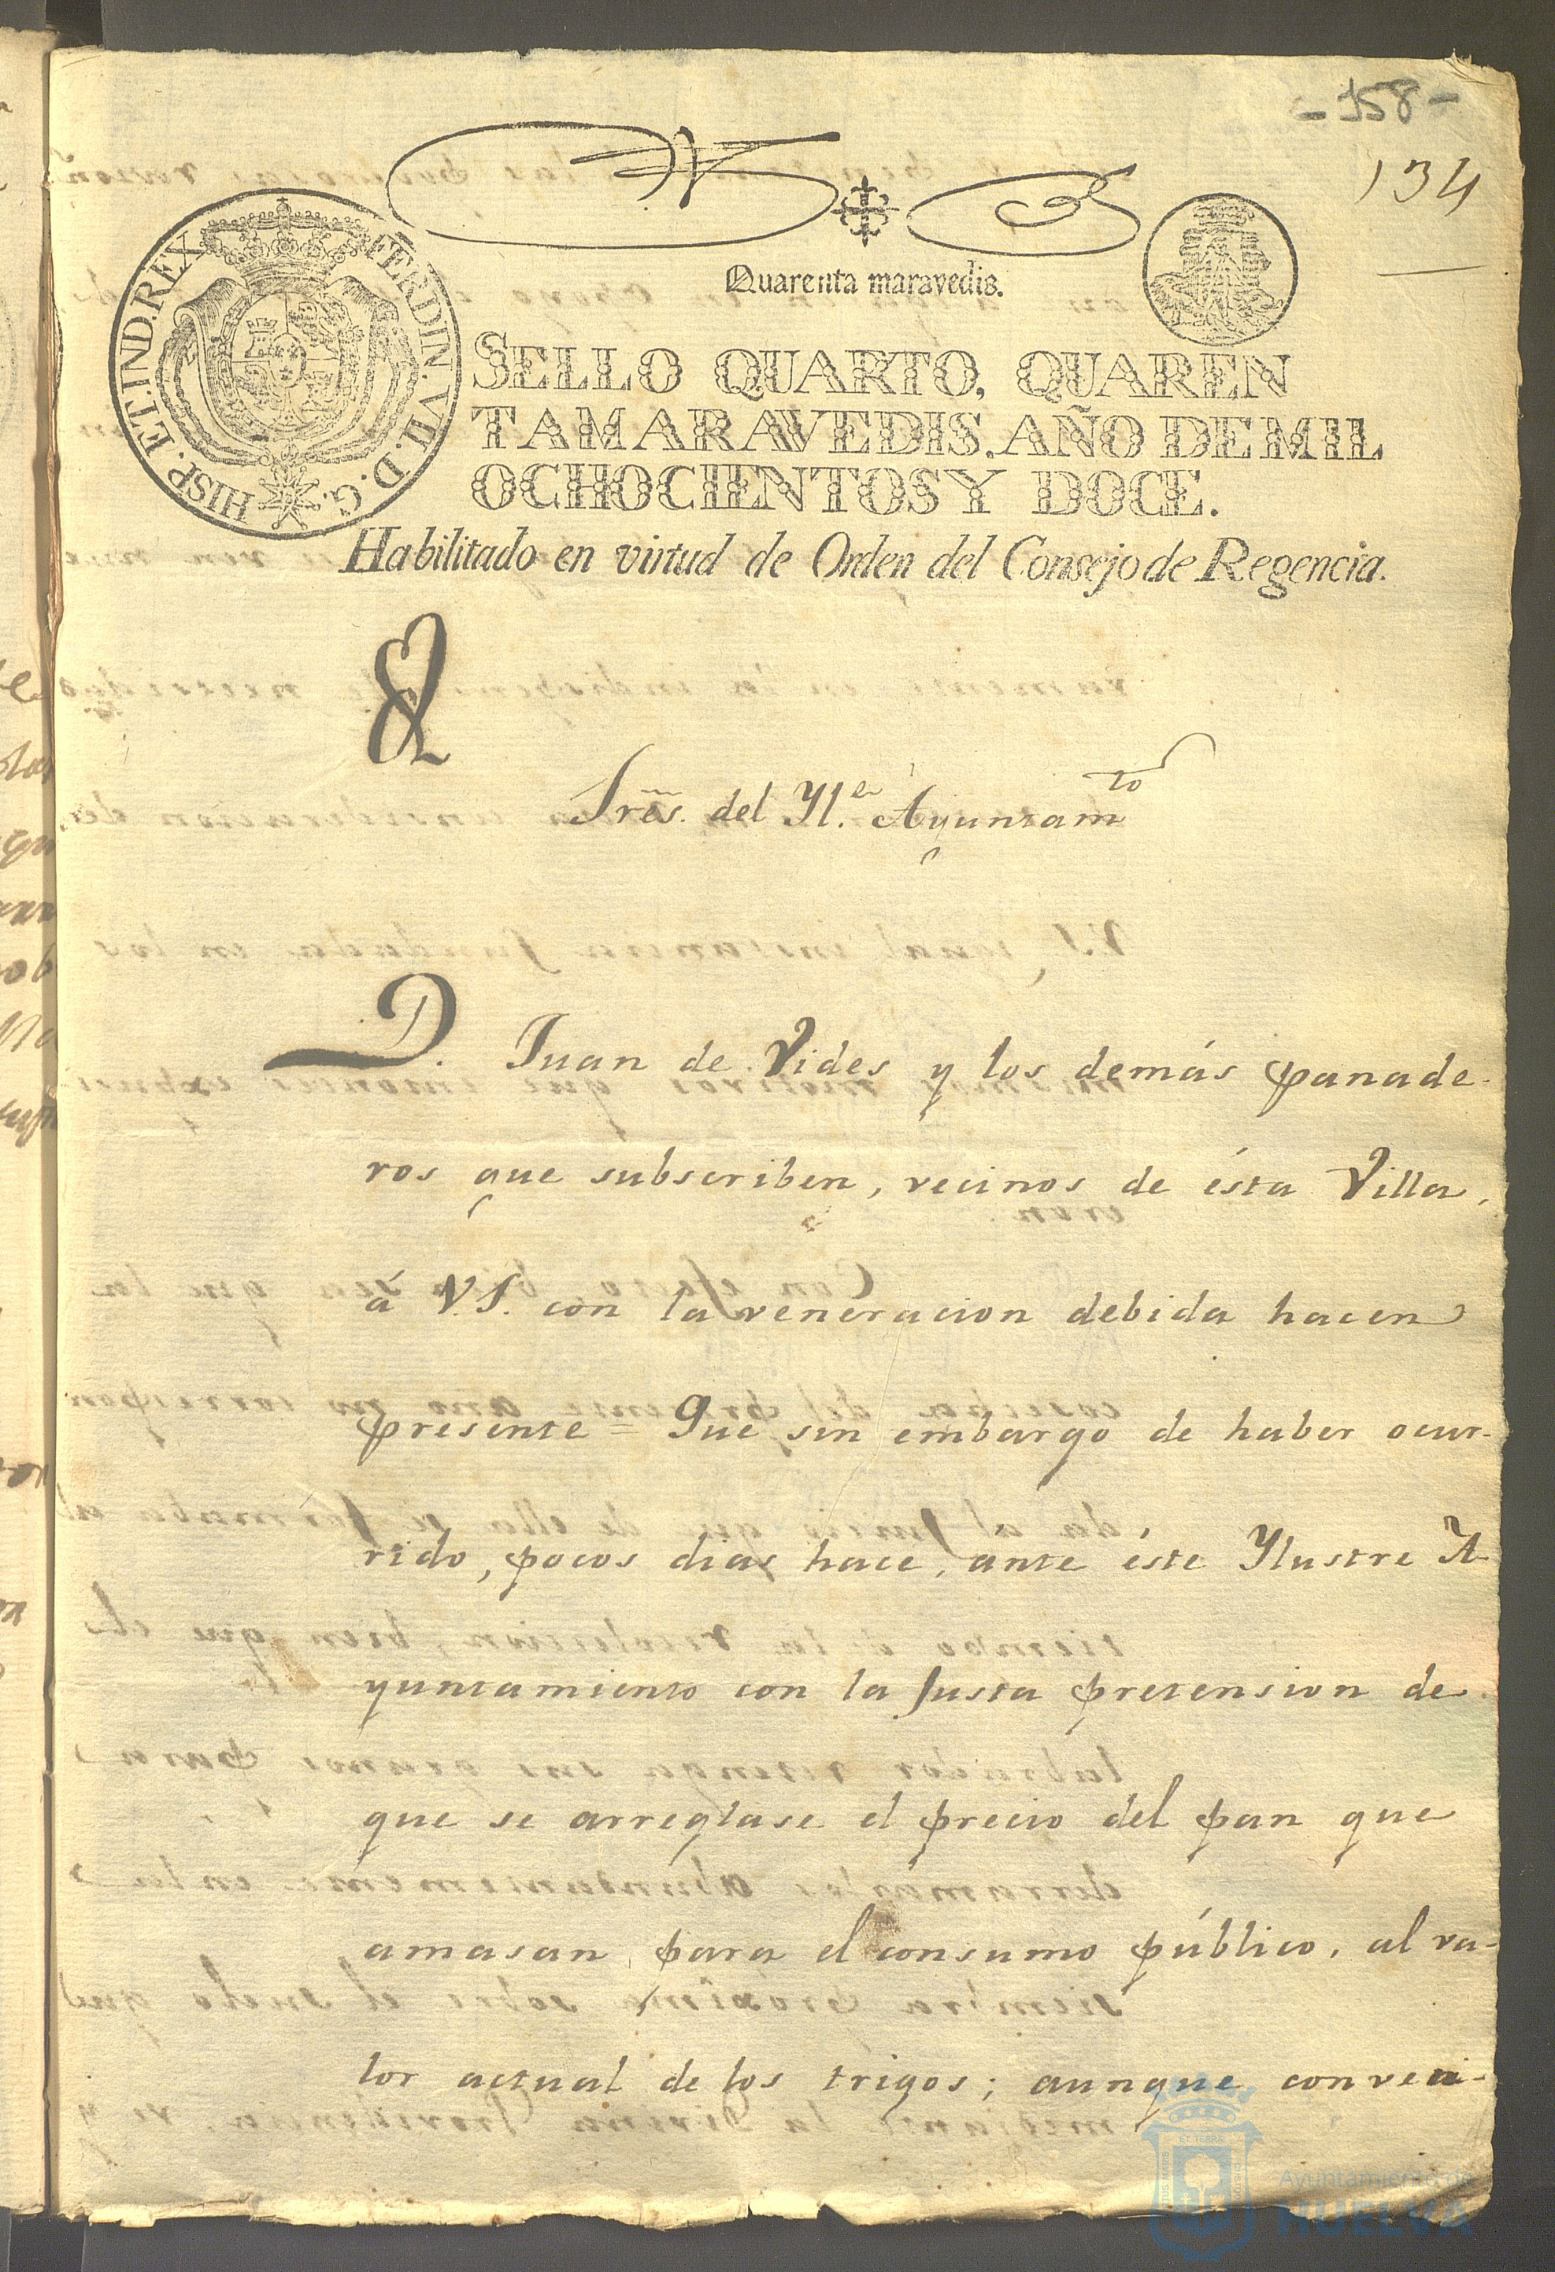 -158-
134
Quarenta maravedis.
HISP. ET. IND. REX
FERDIN. VII. D. G.
SELLO QUARTO, QUAREN
TAMARAVEDIS, AÑO DE MIL
OCHOCIENTOS Y DOCE.
Habilitado en virtud de Orden del Consejo de Regencia.
Sres. del Yl.e Ayuntamto
D. Juan de Vides y los demás panade-
ros que subscriben, vecinos de ésta Villa,
á V.S. con la veneracion debida hacen
presente = Que sin embargo de haber ocur-
rido, pocos dias hace, ante éste Ylustre A-
yuntamiento con la Justa pretension de
que se arreglase el precio del pan que
amasan para el consumo público, al va-
lor actual de los trigos; aunque conven-
Ayuntamiento de
HUELVA